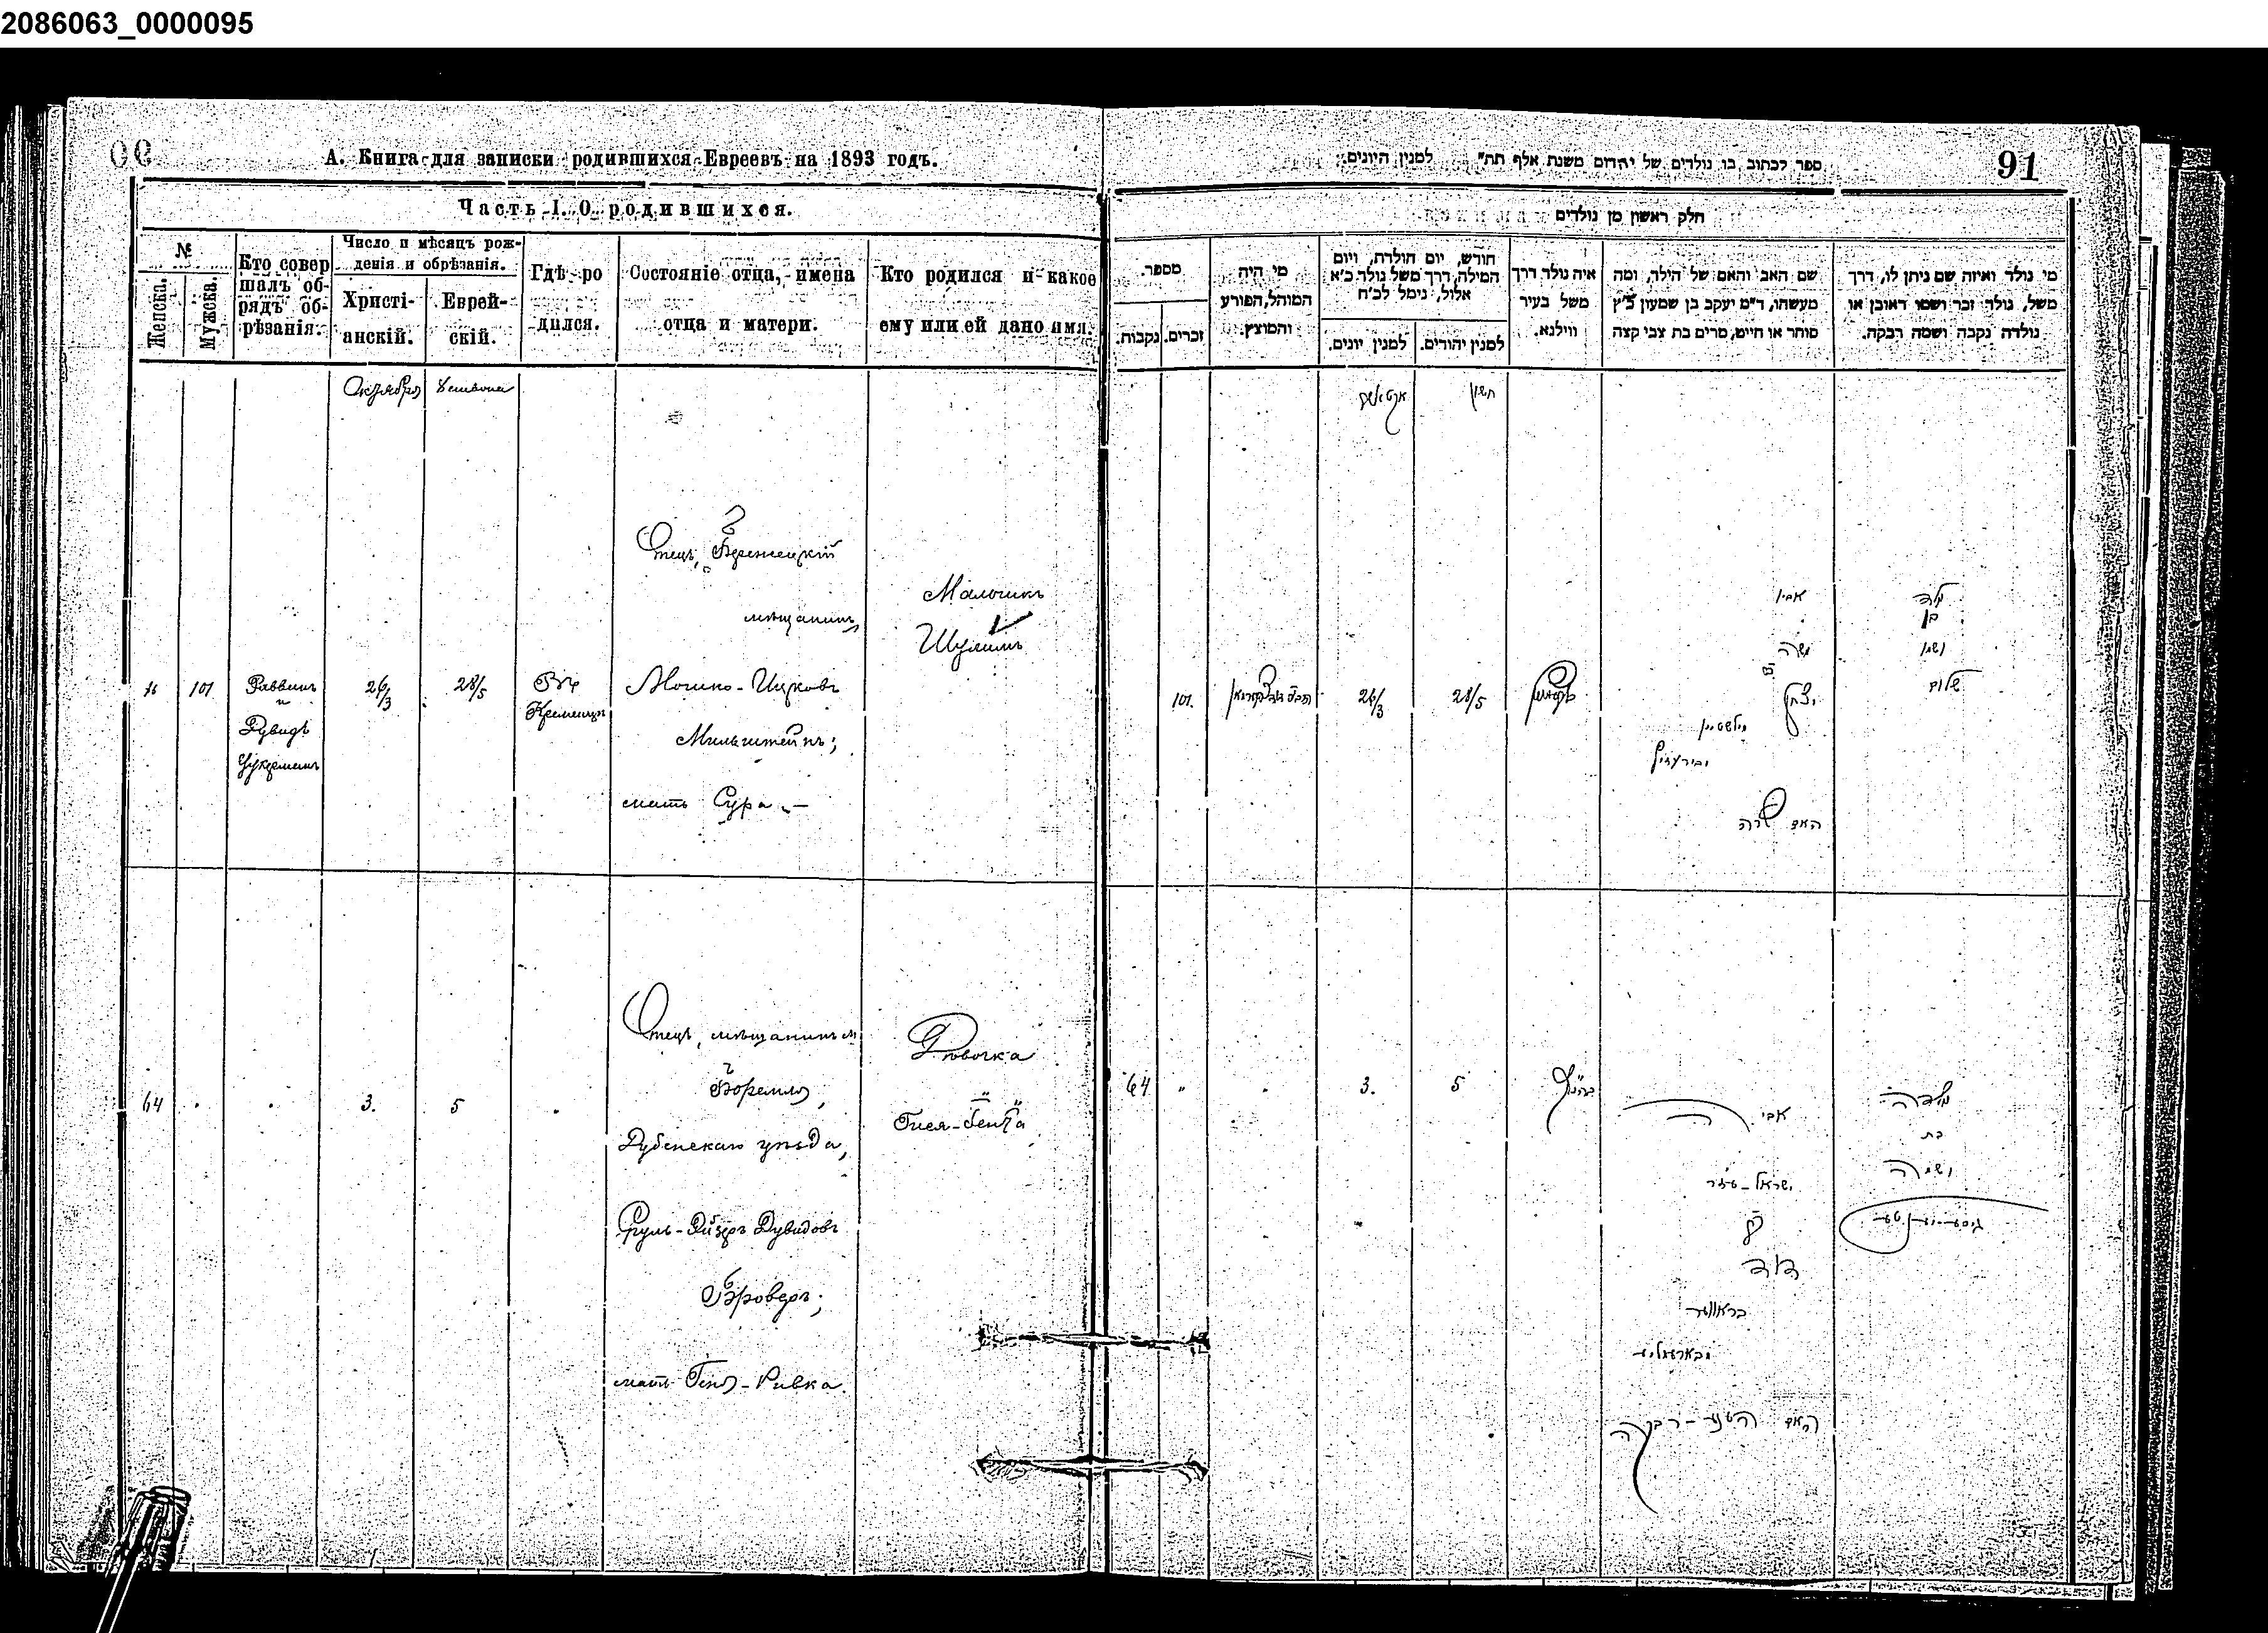 2086063_0000095
90
А. Книга для записки родившихся Евреевъ на 1893 годъ.
Часть I. О родившихся.
№
Женска.
Мужска.
Кто совер
шалъ об-
рядъ об-
рѣзанія.
Число и мѣсяцъ рож-
денія и обрѣзанія.
Христі-
анскій.
Еврей-
скій.
Гдѣ ро
дился.
Состояніе отца, имена
отца и матери.
Кто родился и какое
ему или ей дано имя.
Октября
Хешвона
101
Раввинъ
и
Дувидъ
26/3
28/5
Кременцѣ
Отецъ,
мѣщанинъ
Мошко-Ицковъ
Мильштейнъ;
мать Сура.—
Мальчикъ
Шулимъ
64
3.
5
Отецъ, мѣщанинъ м.
Боремля,
Дубенскаго уѣзда,
Сруль-Лейзеръ Дувидовъ
Броверъ;
мать Геня-Ривка.
Дѣвочка
Гися-Гентя
91
ספר לכתוב בו נולדים של יהודים משנת אלף תת" למנין היונים.
חלק ראשון מן נולדים
מספר.
נקבות.
זכרים.
מי היה
המוהל, הפורע
והמוצץ.
חודש, יום הולדת, ויום
המילה, דרך משל נולד כ"א
אלול, נימל לכ"ח
למנין יונים.
למנין יהודים.
איה נולד דרך
משל בעיר
ווילנא.
שם האב והאם של הילד, ומה
מעשהו, ד"מ יעקב בן שמעון כ"ץ
סוחר או חייט, מרים בת צבי קצה
מי נולד ואיזה שם ניתן לו, דרך
משל, נולד זכר ושמו ראובן או
נולדה נקבה ושמה רבקה.
חשון
101.
26/3
28/5
אביו
משה
יצחק
מילשטיין
האם שרה
נולד
בן
ושמו
שלום
64
3.
5
אבי
דוד
בראווער
האם רבקה
נולדה
בת
ושמה